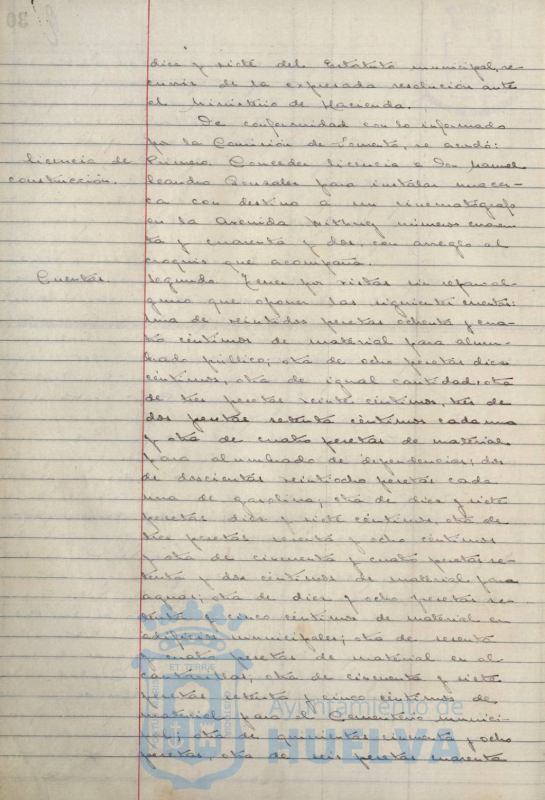 diez y siete del Estatuto municipal, re-
currir de la expresada resolución ante
el Ministerio de Hacienda.
De conformidad con lo informado
por la Comisión de Fomento, se acordó:
licencia de
construcción.
Primero. Conceder licencia a Don Manuel
Leandro González para instalar una cer-
ca con destino a un cinematógrafo
en la Avenida números cuaren-
ta y cuarenta y dos, con arreglo al
croquis que acompaña.
Cuentas.
Segundo. Tener por vistas sin reparo al-
guno que oponer las siguientes cuentas:
una de veintidos pesetas ochenta y cua-
tro céntimos de material para alum-
brado público; otra de ocho pesetas diez
céntimos, otra de igual cantidad, otra
de tres pesetas veinte céntimos, tres de
dos pesetas setenta céntimos cada una
y otra de cuatro pesetas de material
para alumbrado de dependencias; dos
de doscientas veintiocho pesetas cada
una de gasolina; otra de diez y siete
pesetas diez y siete céntimos, otra de
pesetas sesenta y ocho céntimos
y otra de cincuenta y cuatro pesetas se-
tenta y dos céntimos de material para
aguas; otra de diez y ocho pesetas se-
tenta y cinco céntimos de material en
edificios municipales; otra de sesenta
y cuatro pesetas de material en al-
cantarillas; otra de cincuenta y siete
pesetas setenta y cinco céntimos de
material para el Cementerio munici-
pal; otra de quinientas cincuenta y ocho
pesetas, otra de seis pesetas noventa
ET TERRÆ
Ayuntamiento de
HUELVA